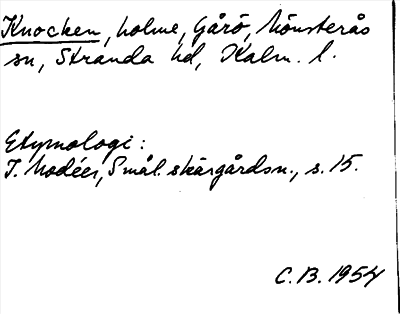 Knocken, holme, Gårö, Mönsterås
sn, Stranda hd, Kalm. l.
Etymologi:
I. Modéer, Smål. skärgårdsn., s. 15.
C.B. 1954